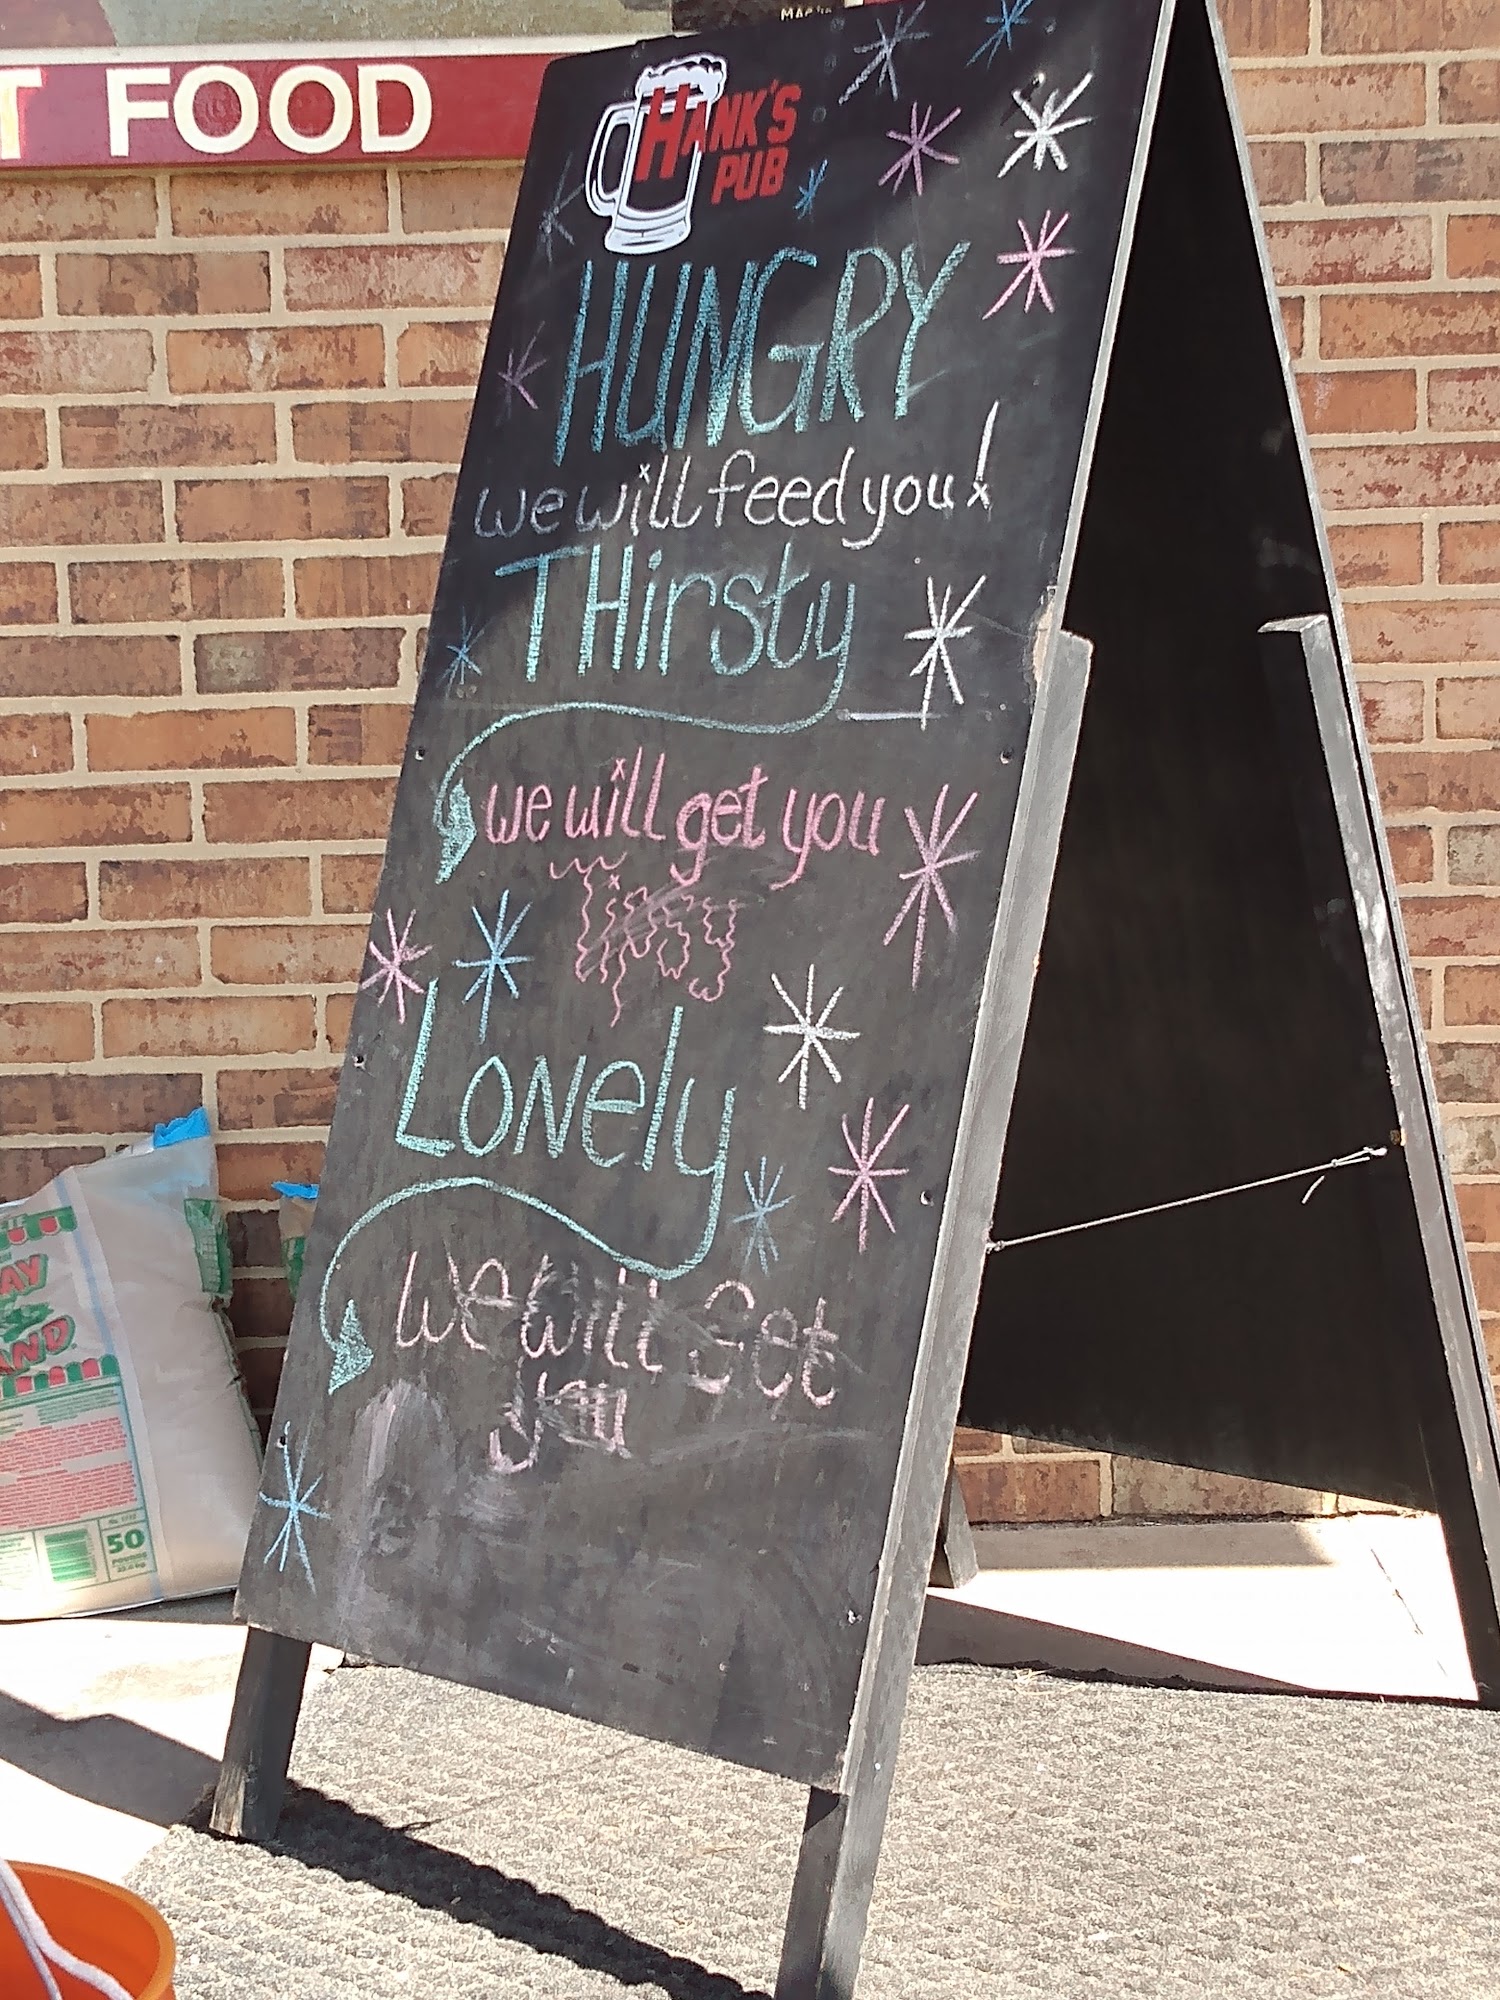 T FOOD
HANK'S
PUB
HUNGRY
we will feed you!
THirsty
we will get you
Tipsy
Lonely
we will get
you
AY
AND
50
POUNDS